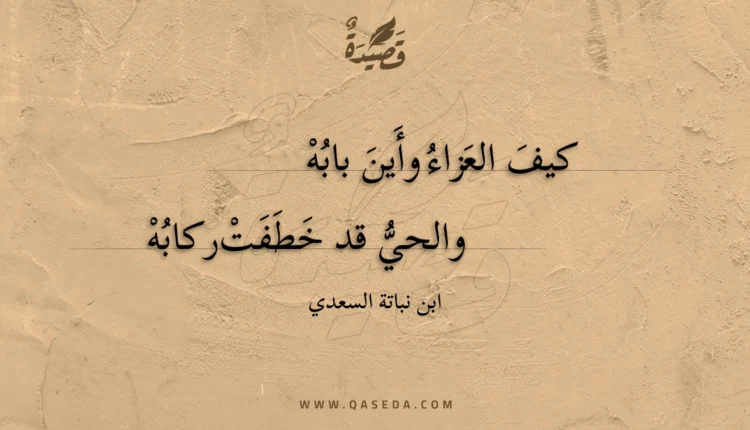 قَصِيدَةٌ
كيفَ العَزاءُ وأَينَ بابُهْ
والحيُّ قد خَطَفَتْ ركابُهْ
ابن نباتة السعدي
WWW.QASEDA.COM